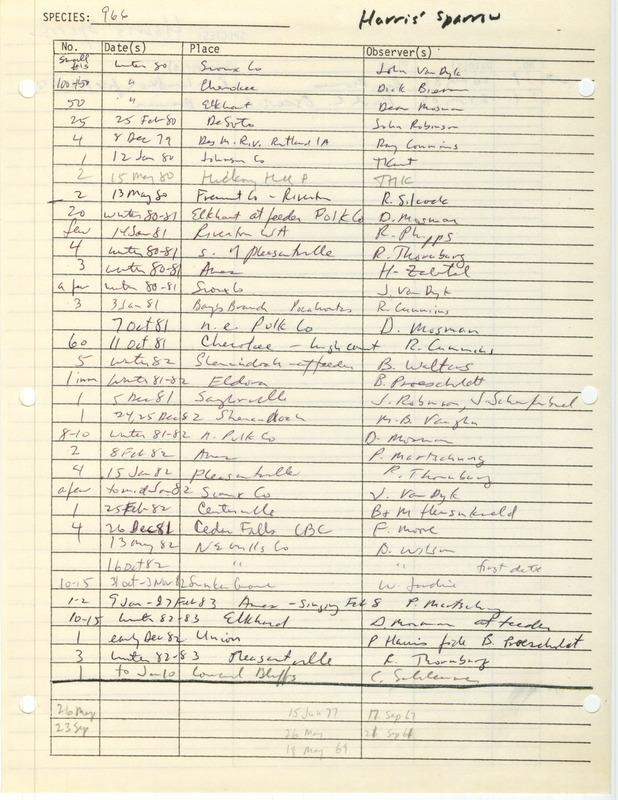 SPECIES: 966 Harris' Sparrow
No. Date(s) Place Observer(s)
small #'s winter 80 Sioux Co John Van Dyk
100-150 " Cherokee Dick Bierman
50 " Elkhart Dean Mosman
25 25 Feb 80 DeSoto John Robinson
4 8 Dec 79 Des M. Riv. Rutland IA Ray Cummins
1 12 Jan 80 Johnson Co TKent
2 15 May 80 Hickory Hill P THK
2 13 May 80 Fremont Co - Riverton R. Silcock
20 winter 80-81 Elkhart at feeder Polk Co D. Mosman
few 14 Jan 81 Riverton WA R. Phipps
4 winter 80-81 s. of Pleasantville R. Thornburg
3 winter 80-81 Ames H. Zaletel
a few winter 80-81 Sioux Co J. Van Dyk
3 3 Jan 81 Pocahontas R. Cummins
7 Oct 81 n.e. Polk Co D. Mosman
60 11 Oct 81 Cherokee - high count R. Cummins
5 winter 82 Shenandoah - at feeder B. Walters
1 imm winter 81-82 Eldora B. Proescholdt
1 5 Dec 81 Saylorville J. Robinson, J.
1 24, 25 Dec 82 Shenandoah M.B. Vaughn
8-10 winter 81-82 n. Polk Co D. Mosman
2 8 Feb 82 Ames P. Martsching
4 15 Jan 82 Pleasantville R. Thornburg
a few to mid Jan 82 Sioux Co J. Van Dyk
1 25 Feb 82 Centerville B & M
4 26 Dec 81 Cedar Falls CBC F. Moore
13 May 82 NE Mills Co D. Wilson
16 Oct 82 " " first date
10-15 31 Oct - 3 Nov 82 Sunken Grove W. Jardine
1-2 9 Jan - 27 Feb 83 Ames - Singing Feb 8 P. Martsching
10-15 winter 82-83 Elkhart D Mosman at feeder
1 early Dec 82 Union P Harris fide B. Proescholdt
3 winter 82-83 Pleasantville R. Thornburg
1 to Jan 10 Council Bluffs
26 May 15 Jun 77 17 Sep 67
23 Sep 26 May 21 Sep 61
18 May 69